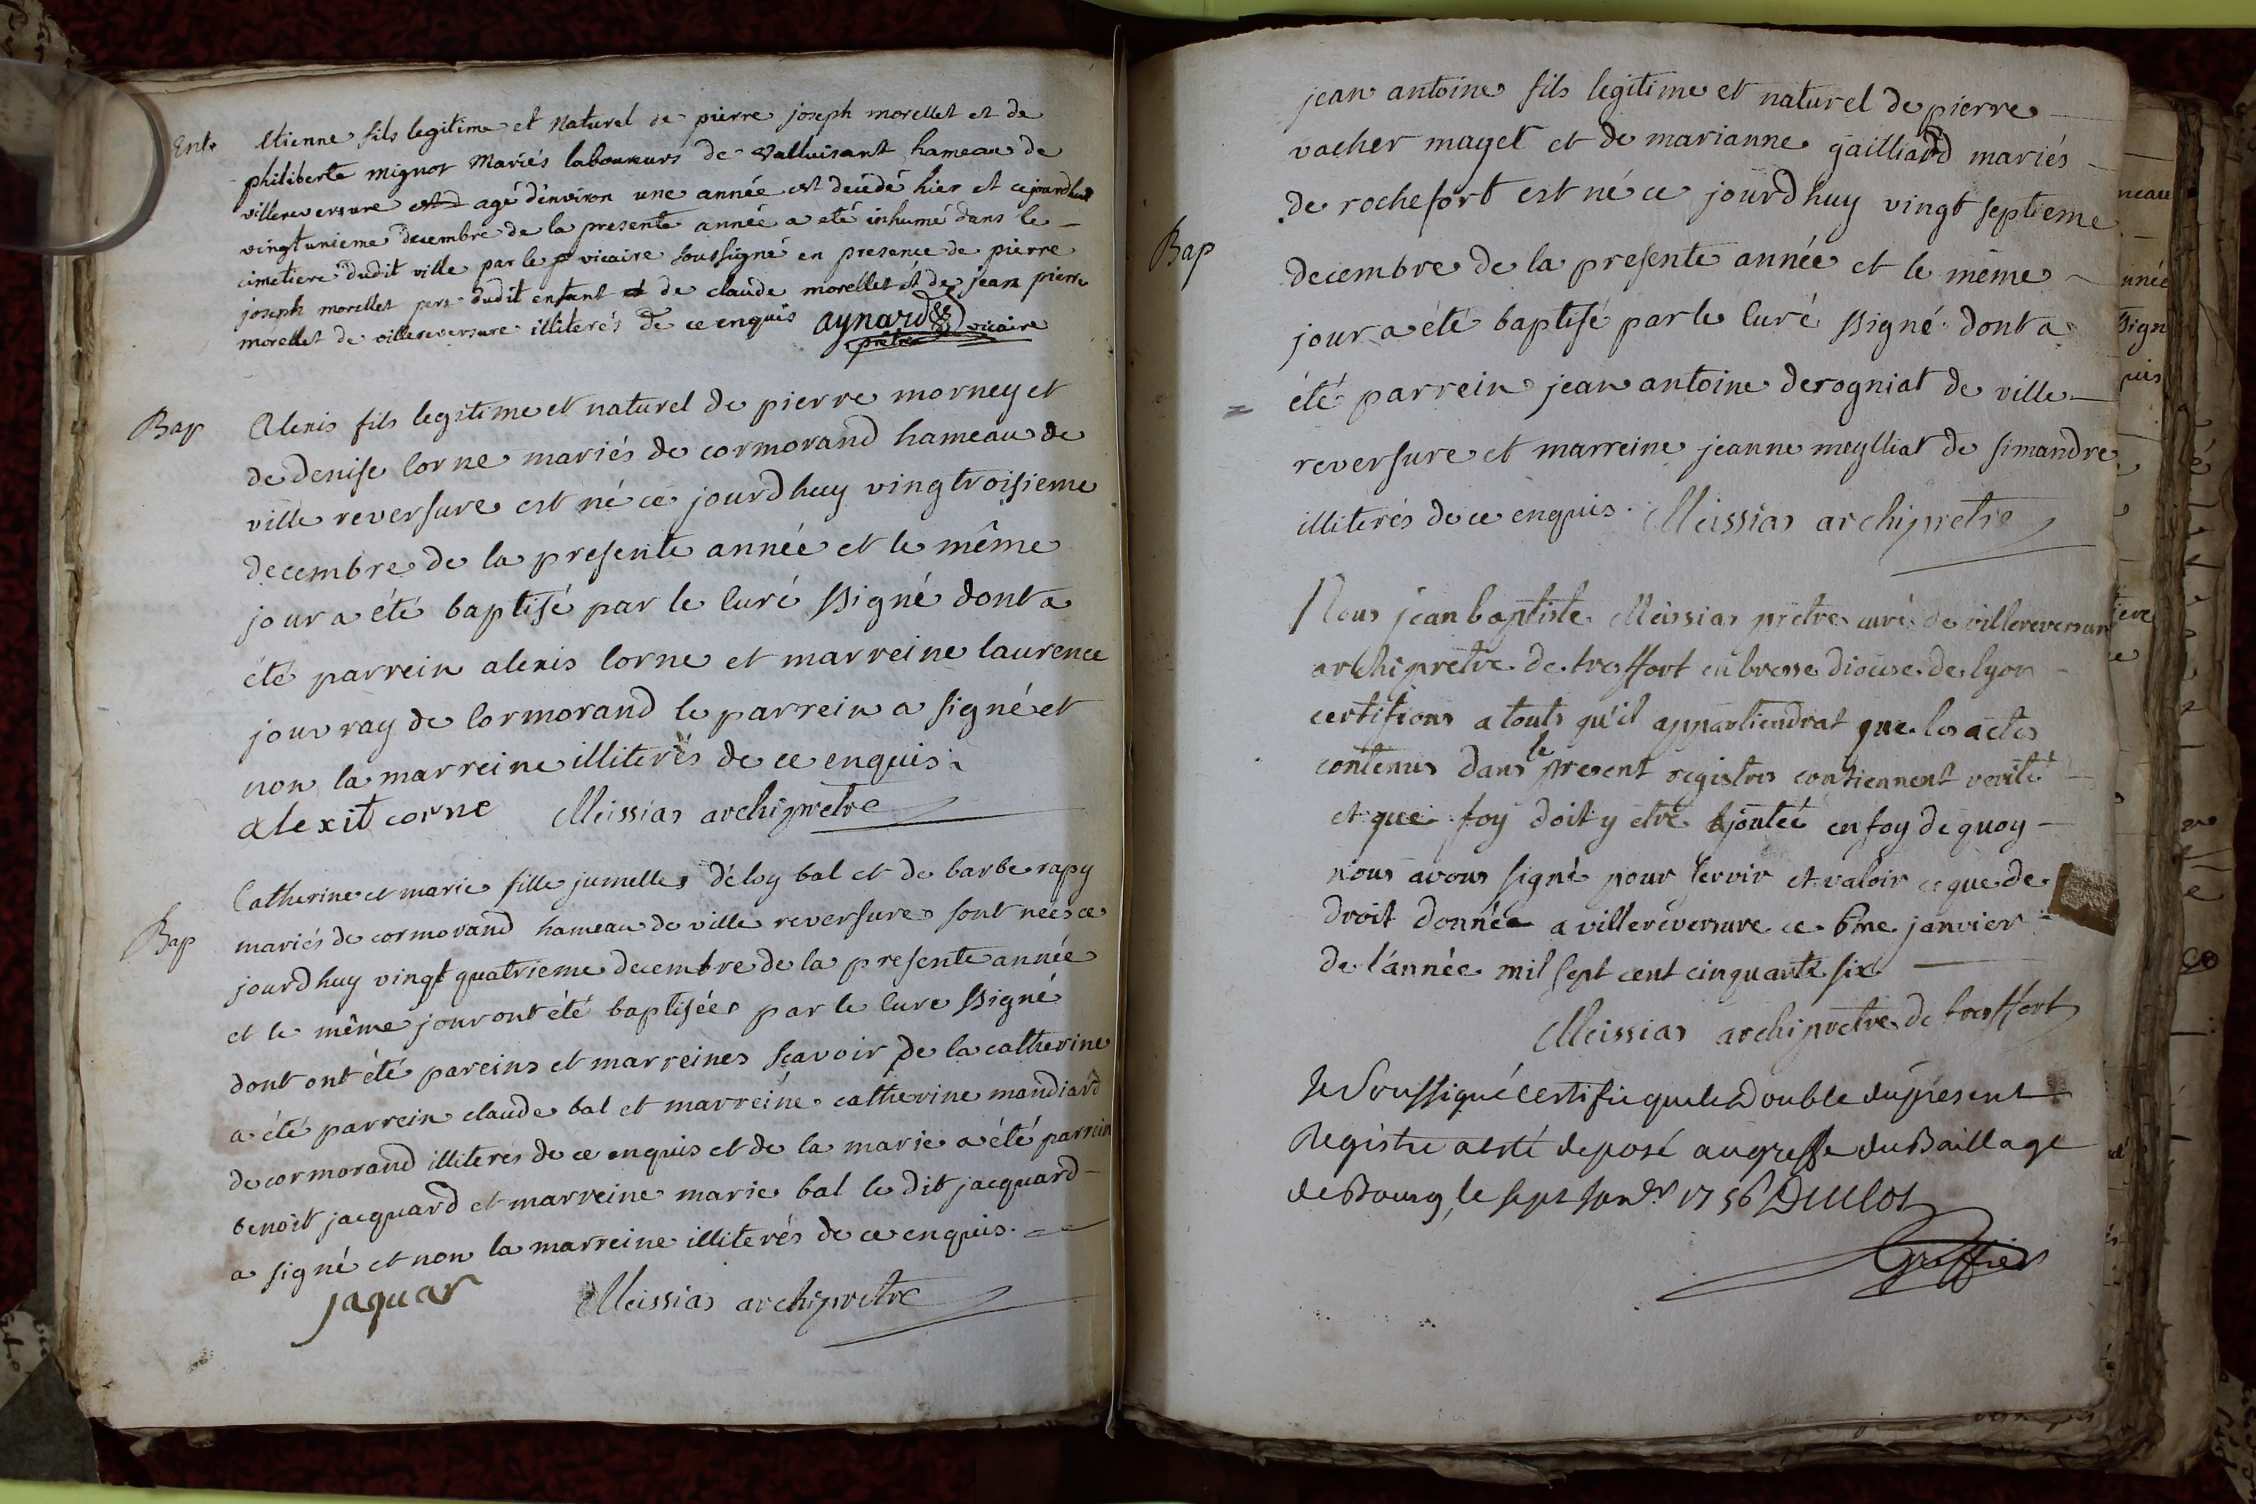 Ent.
Etienne fils legitime et naturel de pierre joseph morellet et de
philiberte mignot mariés laboureurs de valluisant hameau de
villereversure est agé d'environ une année est décédé hier et cejourdhuy
vingtunieme decembre de la presente année a eté inhumé dans le
cimetiere dudit ville par le p vicaire soussigné en presence de pierre
joseph morellet pere dudit enfant et de claude morellet et de jean pierre
morellet de villereversure illiterés de ce enquis aynard
prêtre vicaire
Bap
Alexis fils legitime et naturel de pierre morney et
de denise corne mariés de cormorand hameau de
ville reversure est né ce jourdhuy vingtroisieme
decembre de la presente année et le même
jour a été baptisé par le curé ssigné dont a
été parrein alexis corne et marreine laurence
jouvray de cormorand le parrein a signé et
non la marreine illiterés de ce enquis.
alexit corne Meissias archipretre
Bap
Catherine et marie fille jumelles déloy bal et de barbe rapy
mariés de cormorand hameau de ville reversure sont nées ce
jourdhuy vingt quatrieme decembre de la presente année
et le même jour ont été baptisées par le cure ssigné
dont ont été pareins et marreines sçavoir de la catherine
a été parrein claude bal et marreine catherine mandiard
de cormorand illiterés de ce enquis et de la marie a été parrein
benoit jacquard et marreine marie bal le dit jacquard
a signé et non la marreine illiterés de ce enquis.
jaquar Meissias archipretre
Bap
jean antoine fils legitime et naturel de pierre
vacher mayet et de marianne gailliard mariés
de rochefort est né ce jourdhuy vingt septieme
decembre de la presente année et le même
jour a été baptisé par le curé ssigné dont a
été parrein jean antoine derogniat de ville
reversure et marreine jeanne meylliat de simandre
illiterés de ce enquis. Meissias archipretre
Nous jean baptiste Meissias prêtre curé de villereversure
archipretre de treffort en bresse diocese de lyon
certifions a touts qu'il appartiendrat que les actes
contenus dans le present registres contiennent verité
et que foy doit y etre ajoutée en foy de quoy
nous avons signé pour servir et valoir ce que de
droit donnée a villereversure ce 6me janvier
de l'année mil sept cent cinquante six
Meissias archipretre de treffort
Je Soussigné certifie que le Double du present
Registre a esté deposé au greffe du Baillage
de Bourg, le sept janr. 1756
Greffier